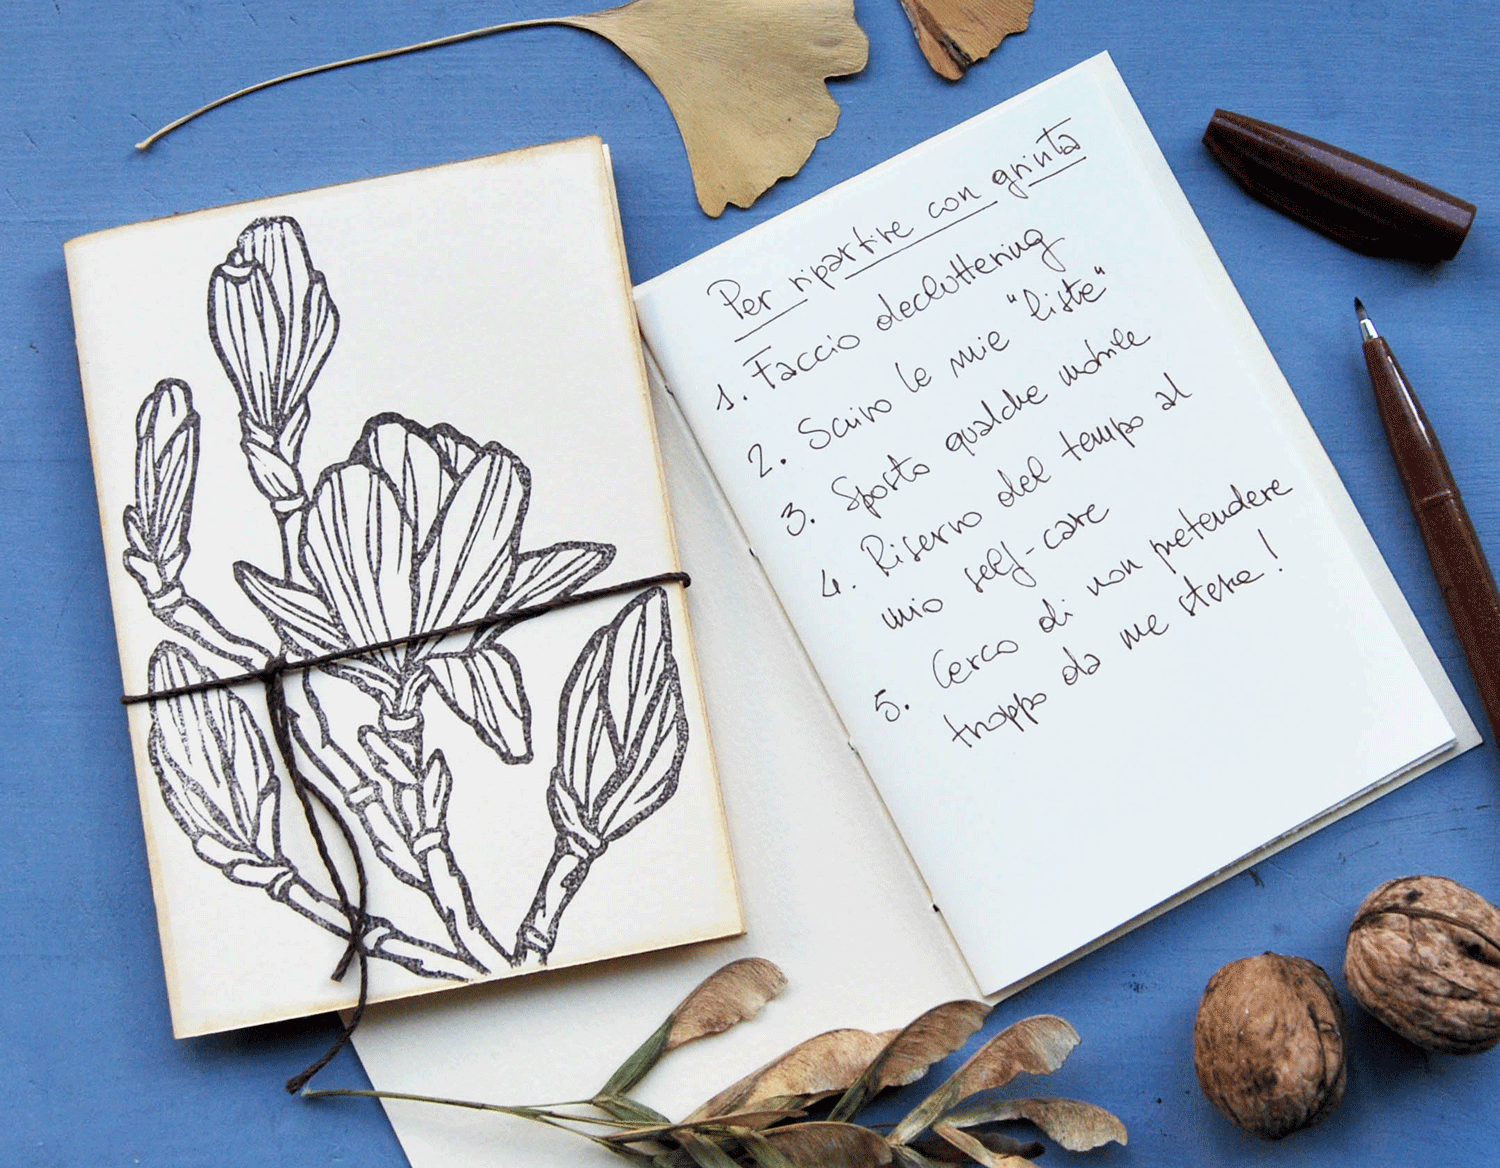 Per ripartire con grinta
1. Faccio decluttering
2. Scrivo le mie "liste"
3. Sposto qualche mobile
4. Riservo del tempo al
mio self-care
5. Cerco di non pretendere
troppo da me stessa!